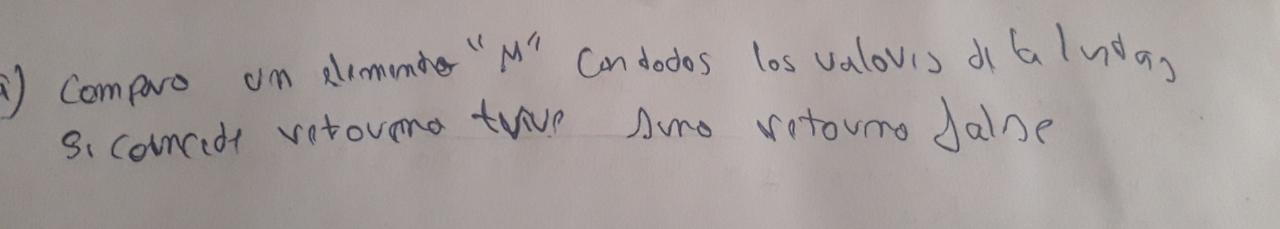 a) Comparo un elemento "M" con todos los valores de la lista,
si coincide retorno true sino retorno false